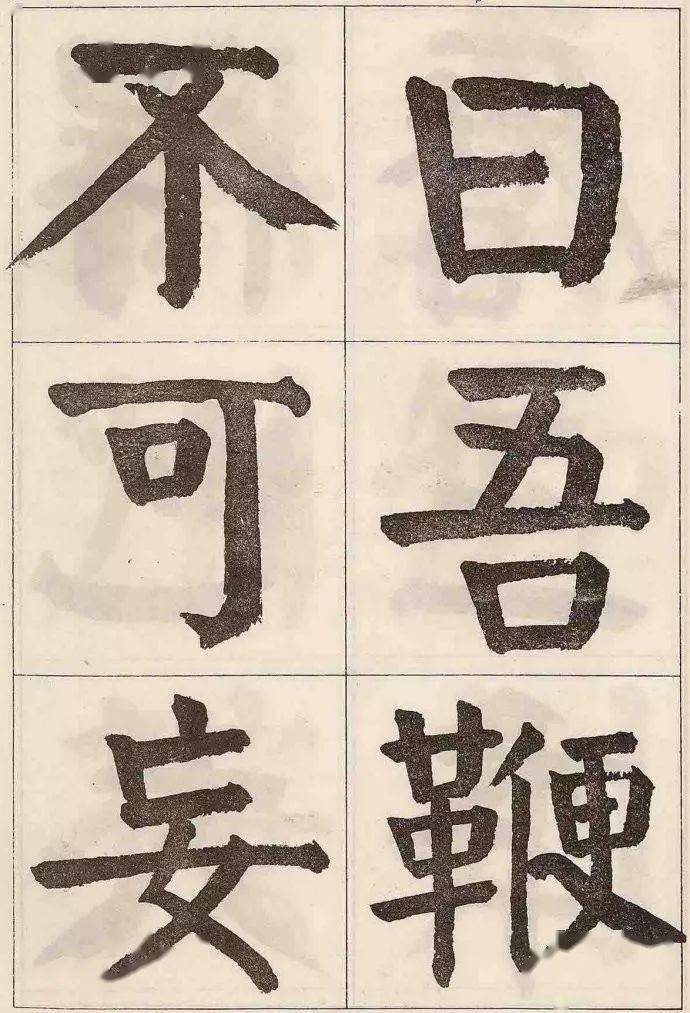 曰吾鞭
不可妄